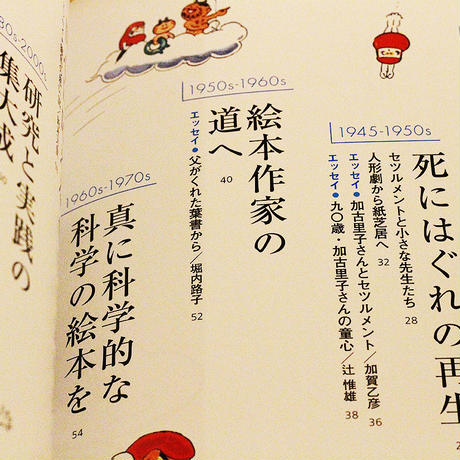 1945-1950s
死にはぐれの再生
セツルメントと小さな先生たち 28
人形劇から紙芝居へ 32
エッセイ●加古里子さんとセツルメント／加賀乙彦 36
エッセイ●九〇歳・加古里子さんの童心／辻 惟雄 38
1950s-1960s
絵本作家の
道へ 40
エッセイ●父がくれた葉書から／堀内路子 52
1960s-1970s
真に科学的な
科学の絵本を 54
研究と実践の
集大成